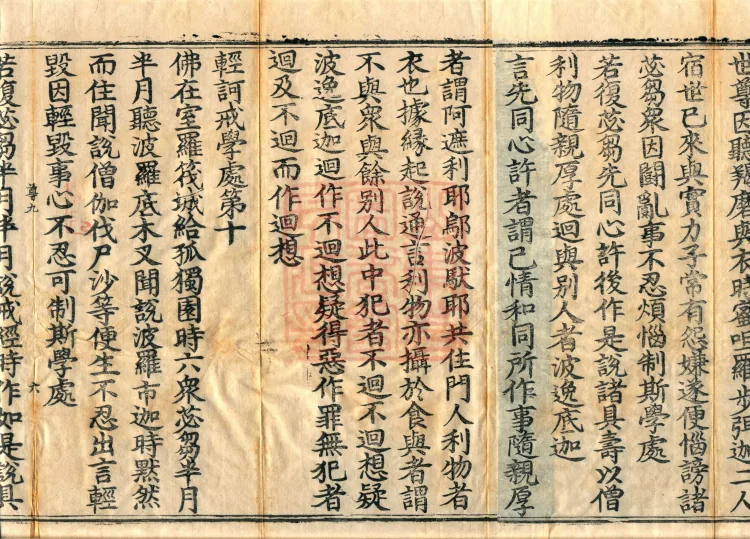 世尊因聽羯磨與衣時蜜呾羅步弭迦二人
宿世已來與實力子常有怨嫌遂便惱謗諸
苾芻衆因鬪亂事不忍煩惱制斯學處
若復苾芻先同心許後作是說諸具壽以僧
利物隨親厚處迴與別人者波逸底迦
言先同心許者謂己情和同所作事隨親厚
者謂阿遮利耶鄔波馱耶共住門人利物者
衣也據緣起說通言利物亦攝於食與者謂
不與衆與餘別人此中犯者不迴不迴想疑
波逸底迦迴作不迴想疑得惡作罪無犯者
迴及不迴而作迴想
輕訶戒學處第十
佛在室羅筏城給孤獨園時六衆苾芻半月
半月聽波羅底木叉聞說波羅市迦時默然
而住聞說僧伽伐尸沙等便生不忍出言輕
毀因輕毀事心不忍可制斯學處
尊九
六
若復苾芻半月半月說戒經時作如是說具